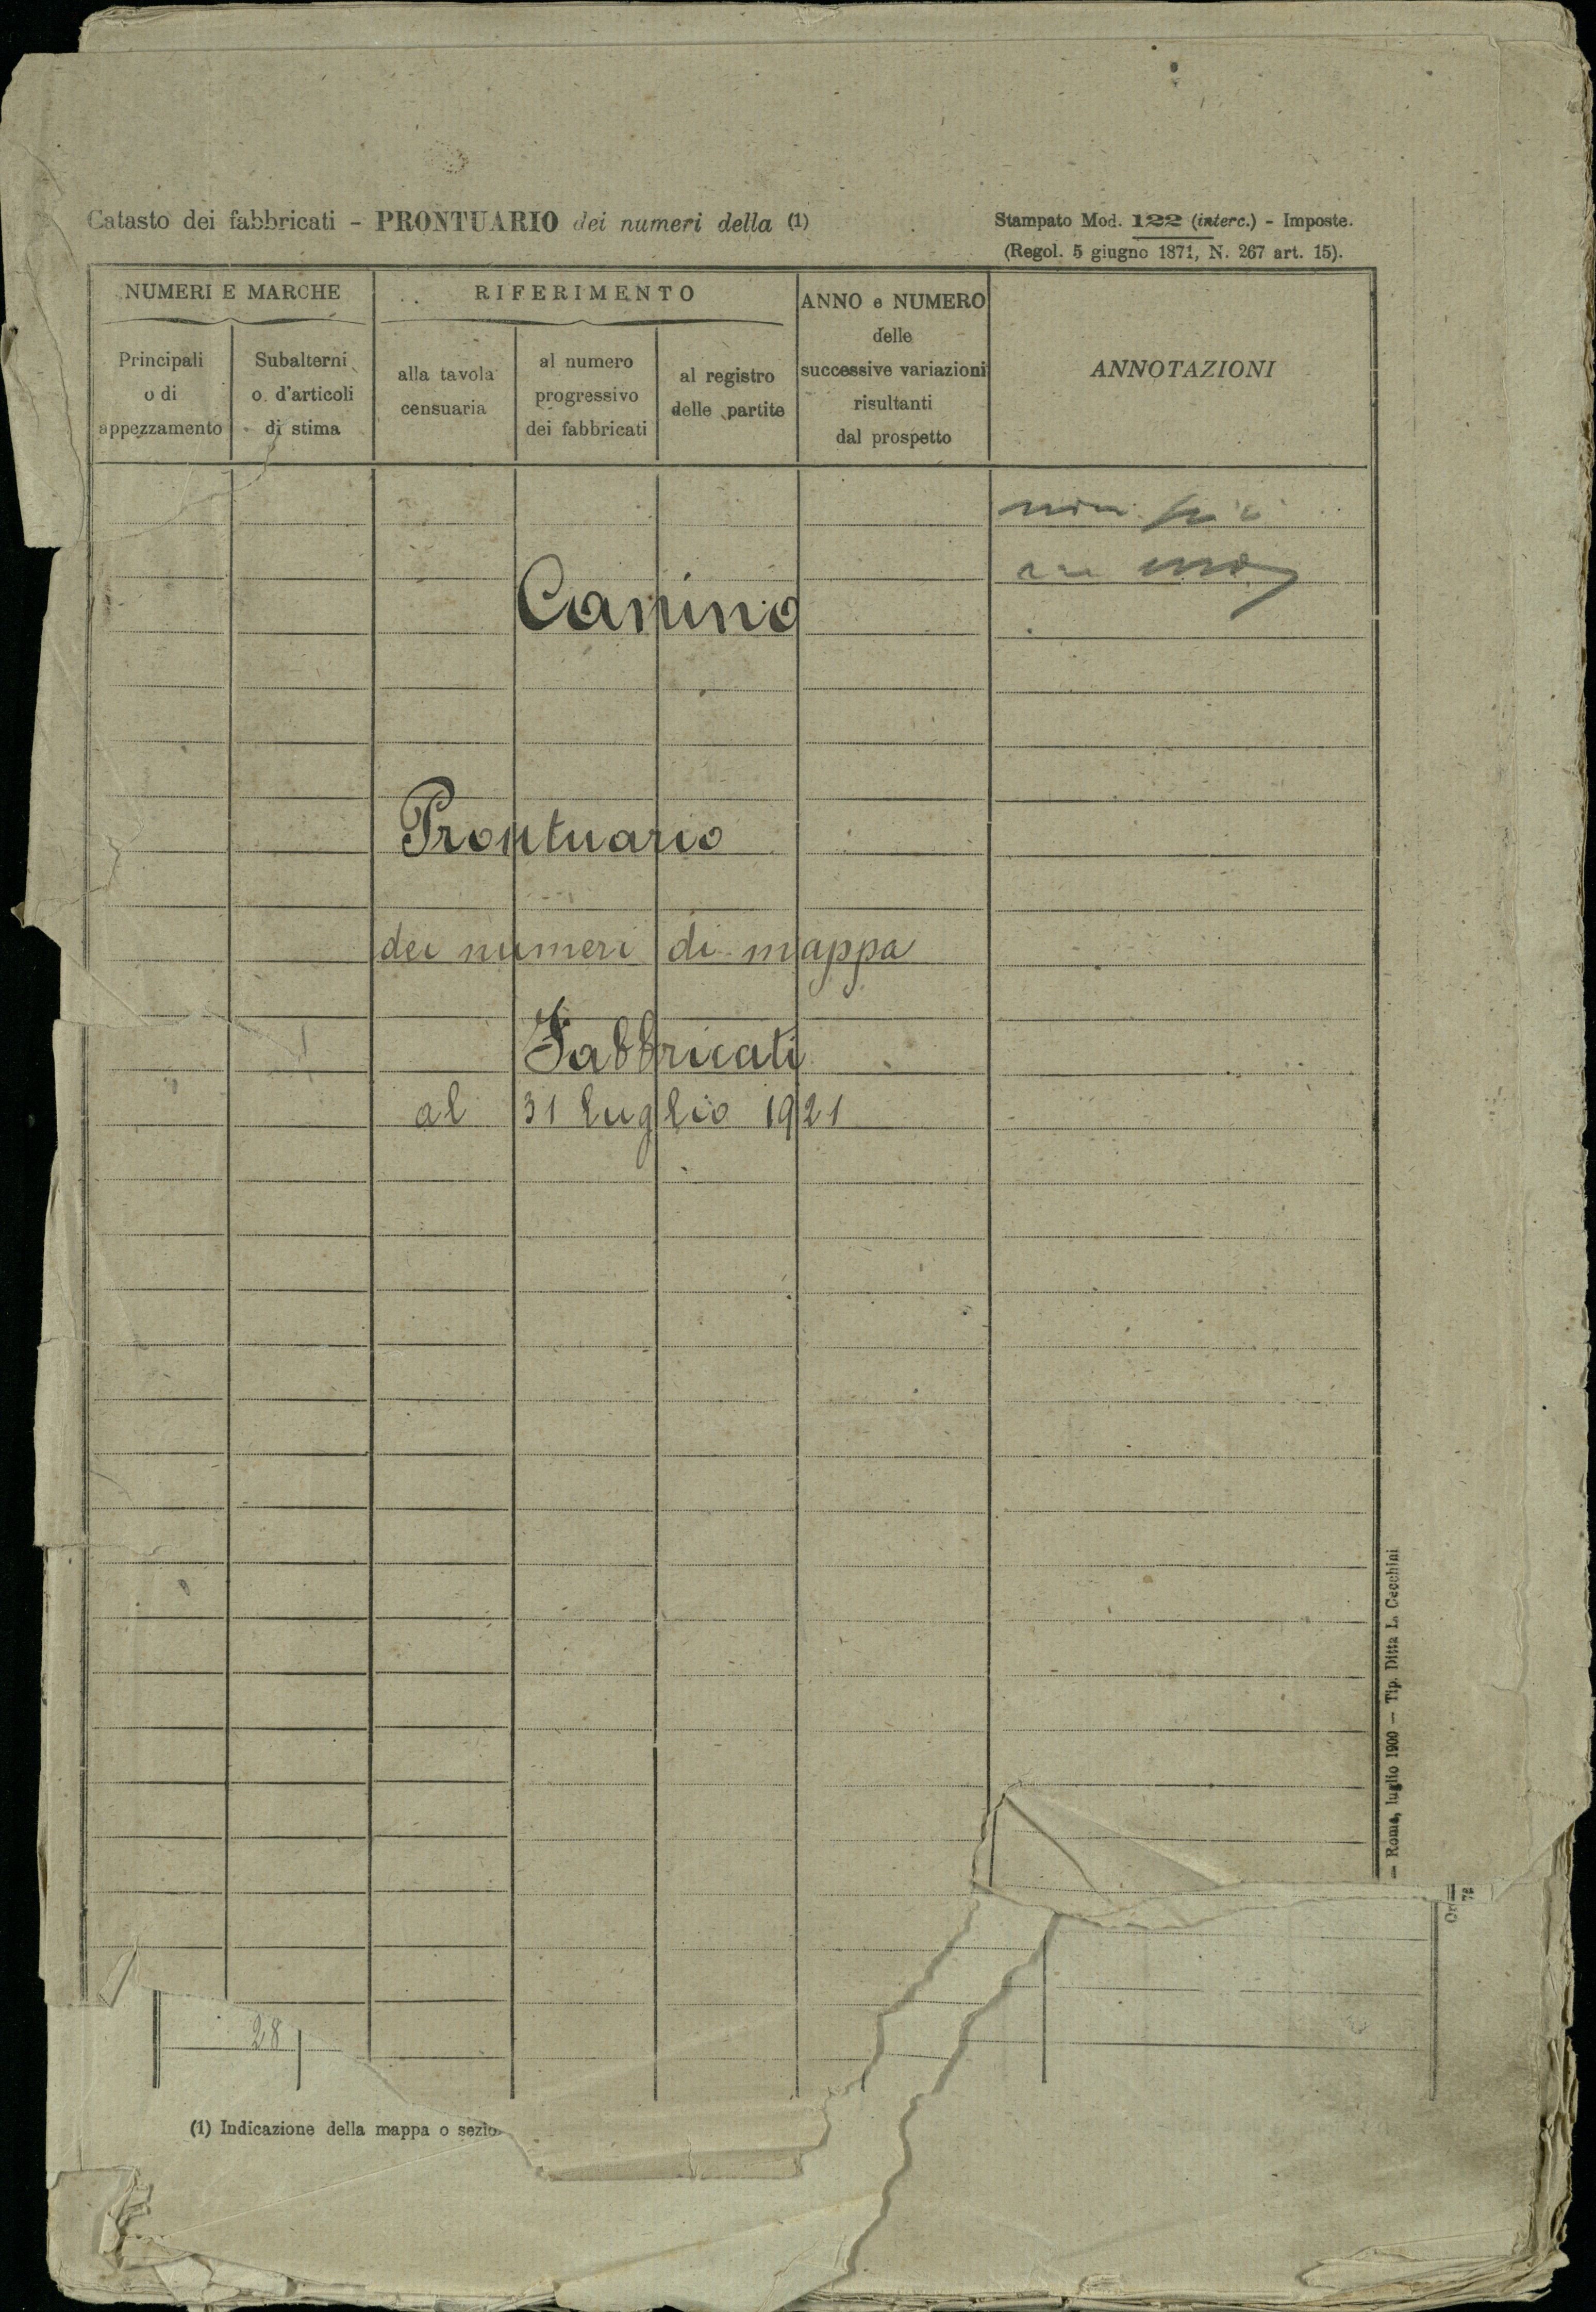 Catasto dei fabbricati - PRONTUARIO dei numeri della (1)
Stampato Mod. 122 (interc.) - Imposte.
(Regol. 5 giugno 1871, N. 267 art. 15).
NUMERI E MARCHE
Principali
o di
appezzamento
Subalterni
o d'articoli
di stima
RIFERIMENTO
alla tavola
censuaria
al numero
progressivo
dei fabbricati
al registro
delle partite
ANNO e NUMERO
delle
successive variazioni
risultanti
dal prospetto
ANNOTAZIONI
Canino
Prontuario
dei numeri di mappa
Fabbricati
al 31 luglio 1921
28
(1) Indicazione della mappa o
— Roma, luglio 1900 — Tip. Ditta L. Cecchini